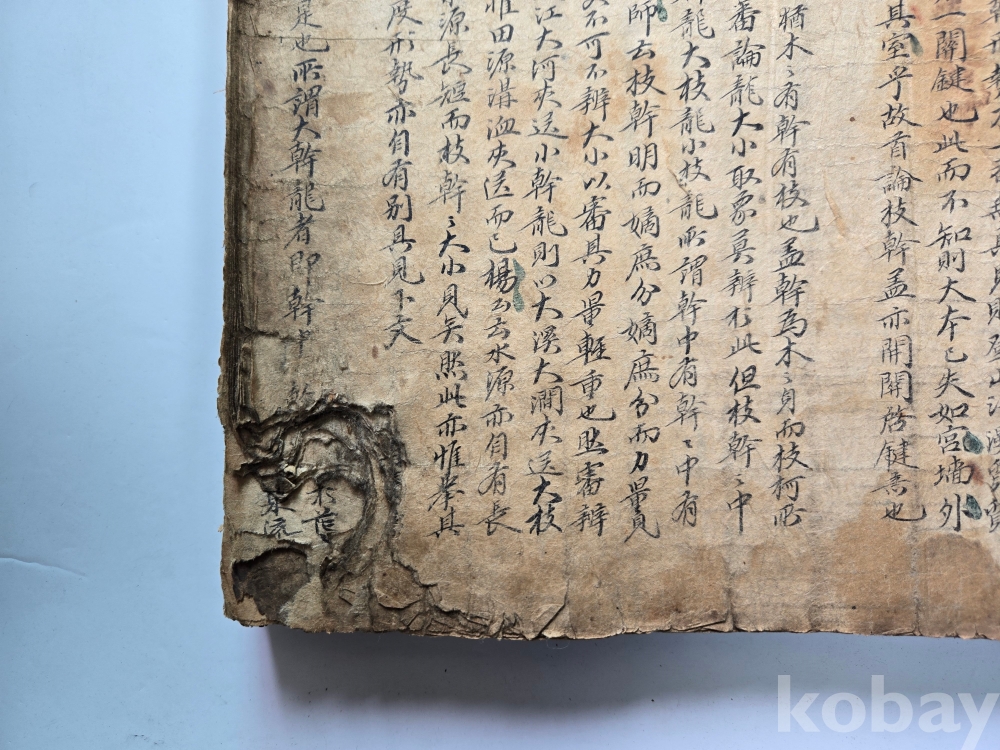 一關鍵也此而不知則大本已失如宮墻外
其室乎故首論枝幹盖亦開關啓鍵意也
猶木〻有幹有枝也盖幹爲木〻身而枝柯所
審論龍大小取象莫辨於此但枝幹〻中
幹龍大枝龍小枝龍所謂幹中有幹〻中有
師云枝幹明而嫡庶分嫡庶分而力量見
不可不辨大小以審其力量輕重也然審辨
江大河夾送小幹龍則以大溪大澗夾送大枝
惟田源溝洫夾送而已楊公云水源亦自有長
源長短而枝幹〻大小見矣然此亦惟擧其
度形勢亦自有别具見下文
是也所謂大幹龍者即幹中幹
kobay